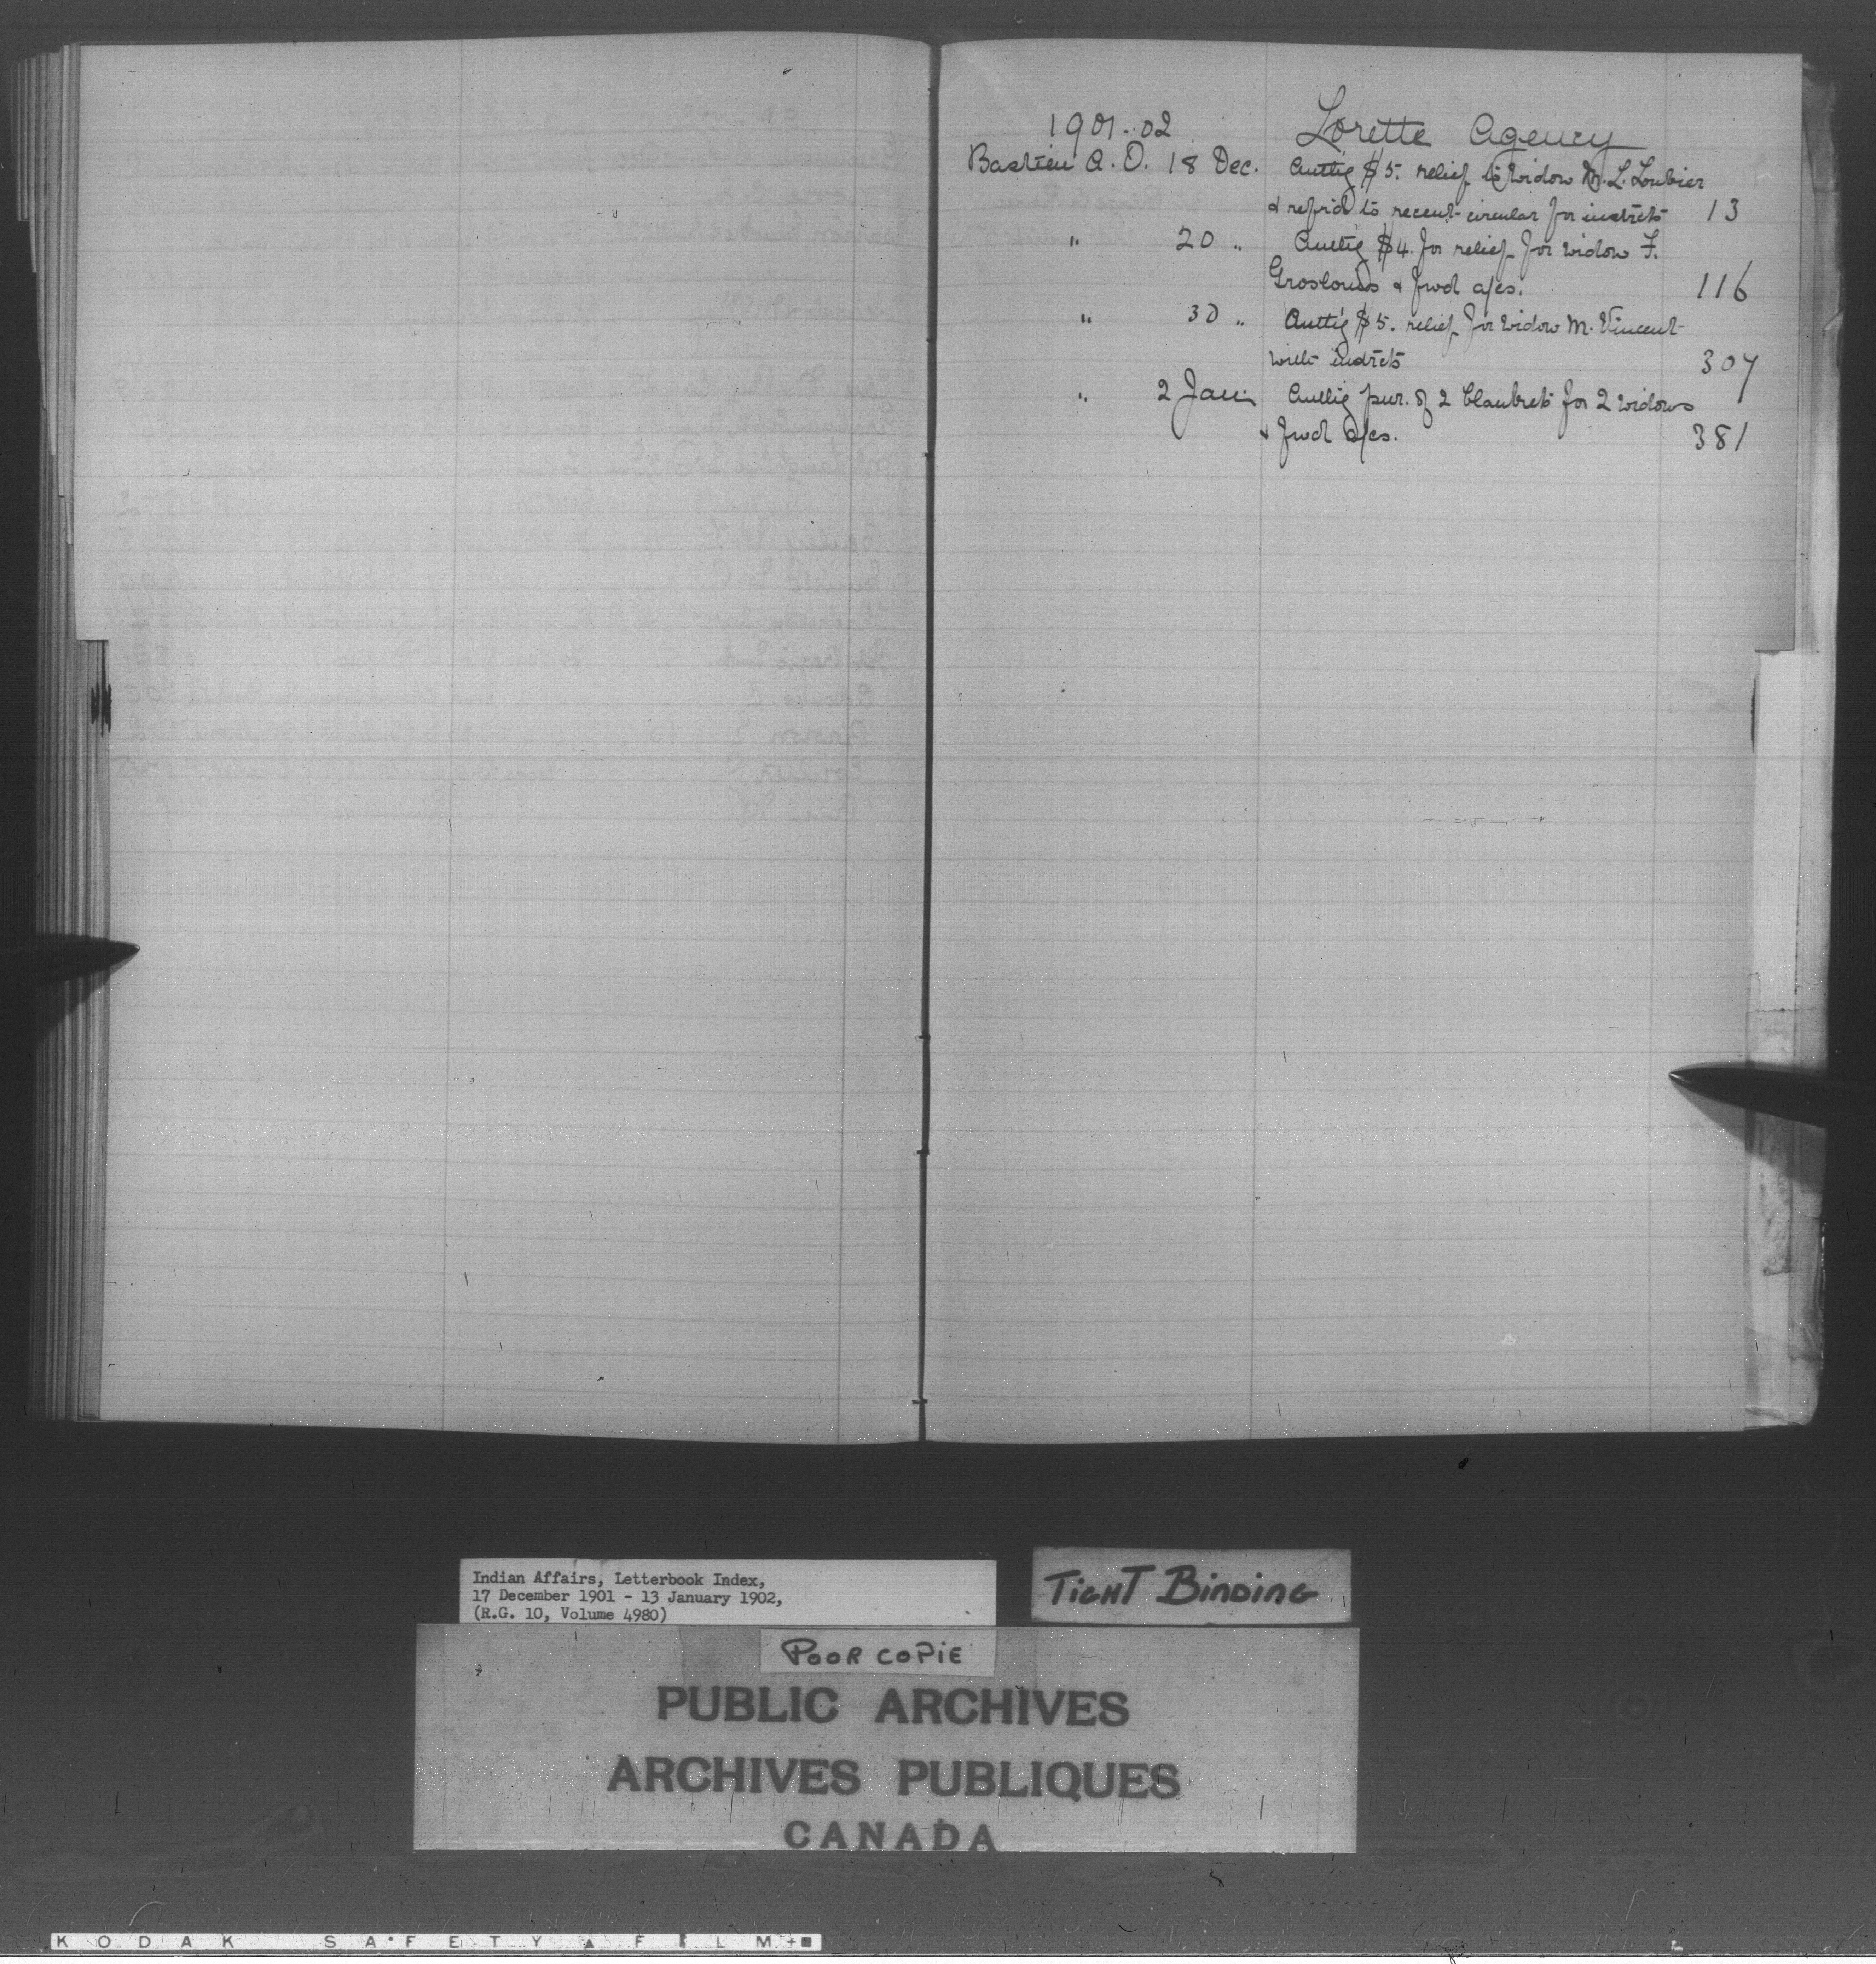 1901-02 Lorette Agency
Bastien A. O. 18 Dec. Authg $5. relief to Widow M. L. Loubier
& refrd to recent circular for instrcts 13
" 20 " Authg $4. for relief for widow F.
Groslouis & fwd a/cs. 116
" 30 " Authg $5. relief for widow M. Vincent
with instrcts 307
" 2 Jan. Authg pur. of 2 blankets for 2 widows
& fwd a/cs. 381
Indian Affairs, Letterbook Index,
17 December 1901 - 13 January 1902,
(R.G. 10, Volume 4980)
TIGHT BINDING
POOR COPIE
PUBLIC ARCHIVES
ARCHIVES PUBLIQUES
CANADA
KODAK SAFETY FILM